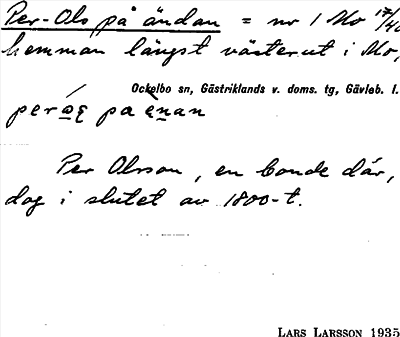 Per-Ols på ändan = nr 1 Mo 17/40
hemman längst västerut i Mo,
Ockelbo sn, Gästriklands v. doms. tg, Gävleb. l.
per pa
Per Olsson, en bonde där,
dog i slutet av 1800-t.
LARS LARSSON 1935